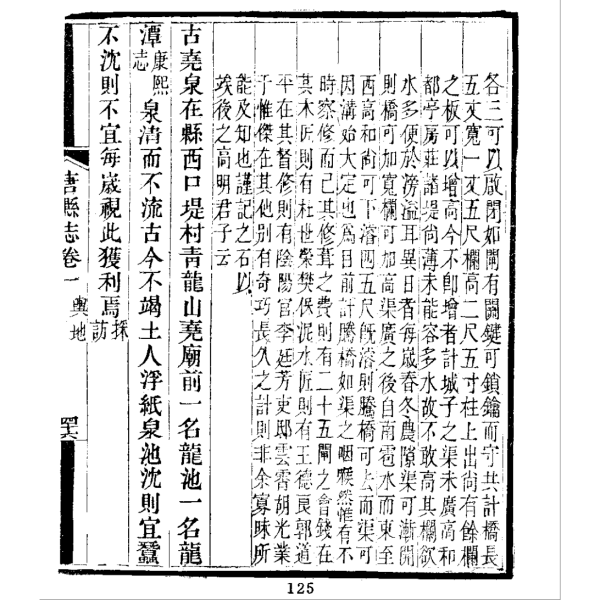 各三可以啟閉如閘有關鍵可鎖鑰而守共計橋長
五丈寬一丈五尺欄高二尺五寸柱上出尚有餘欄
之板可以增高今不即增者計城子之渠未廣高和
都亭房莊諸堤尚薄未能容多水故不敢高其欄欲
水多便於滂溢耳異日者每歲春冬農隙渠可漸開
則橋可加寬欄可加高渠廣之後自南雹水而東至
西高和尚可下溶四五尺旣溶則騰橋可去而渠可
因溝始大定也為目前計騰橋如渠之咽喉然惟有不
時察修而已其修葺之費則有二十五閘之會錢在
其木匠則有杜世榮樊保泥水匠則有王德良郭道
平在其督修則有陰陽官李廷芳吏邸雲霄胡光業
于惟傑在其他别有奇巧長久之計則非余寡昧所
能及知也謹記之石以
俟後之高明君子云
古堯泉在縣西口堤村青龍山堯廟前一名龍池一名龍
潭康熙志泉清而不流古今不竭土人浮紙泉池沈則宜蠶
不沈則不宜每歲視此獲利焉採訪
唐縣志卷一 輿地 罢
125